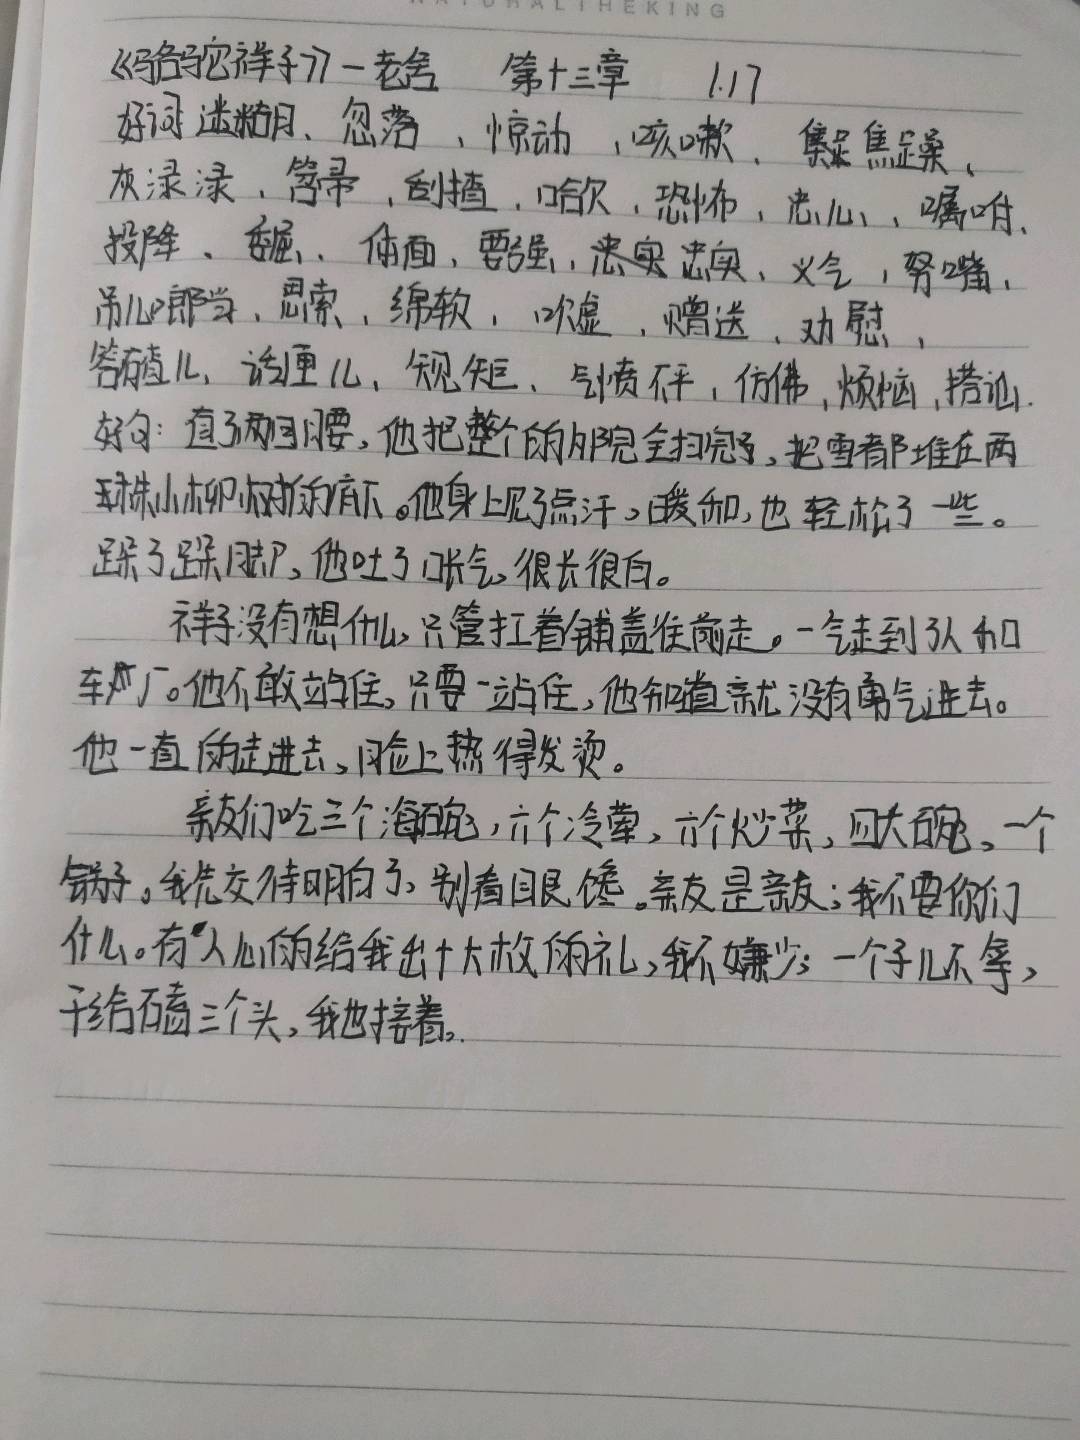 NATURALTHEKING
《骆驼祥子》—老舍 第十三章 1.17
好词 迷糊、忽落、惊动、咳嗽、焦躁、
灰渌渌、笤帚、刮揸、哈欠、恐怖、忠心、嘱咐、
投降、委屈、体面、要强、忠实、义气、努嘴、
吊儿啷当、思索、绵软、吹嘘、赠送、劝慰、
答碴儿、话匣儿、规矩、气愤不平、仿佛、烦恼、搭讪.
好句：直了两回腰,他把整个的外院全扫完了,把雪都堆在两
株小柳树的底下。他身上见了点汗,暖和,也轻松了一些。
跺了跺脚,他吐了口长气,很长很白。
祥子没有想什么,只管扛着铺盖往前走。一气走到了人和
车厂。他不敢站住,只要一站住,他知道就没有勇气进去。
他一直的走进去,脸上热得发烫。
亲友们吃三个海碗,六个冷荤,六个炒菜,四大碗,一个
锅子。我先交待明白了,别看着眼馋。亲友是亲友；我不要你们
什么。有人心的给我出十大枚的礼,我不嫌少；一个子儿不拿,
干给磕三个头,我也接着。